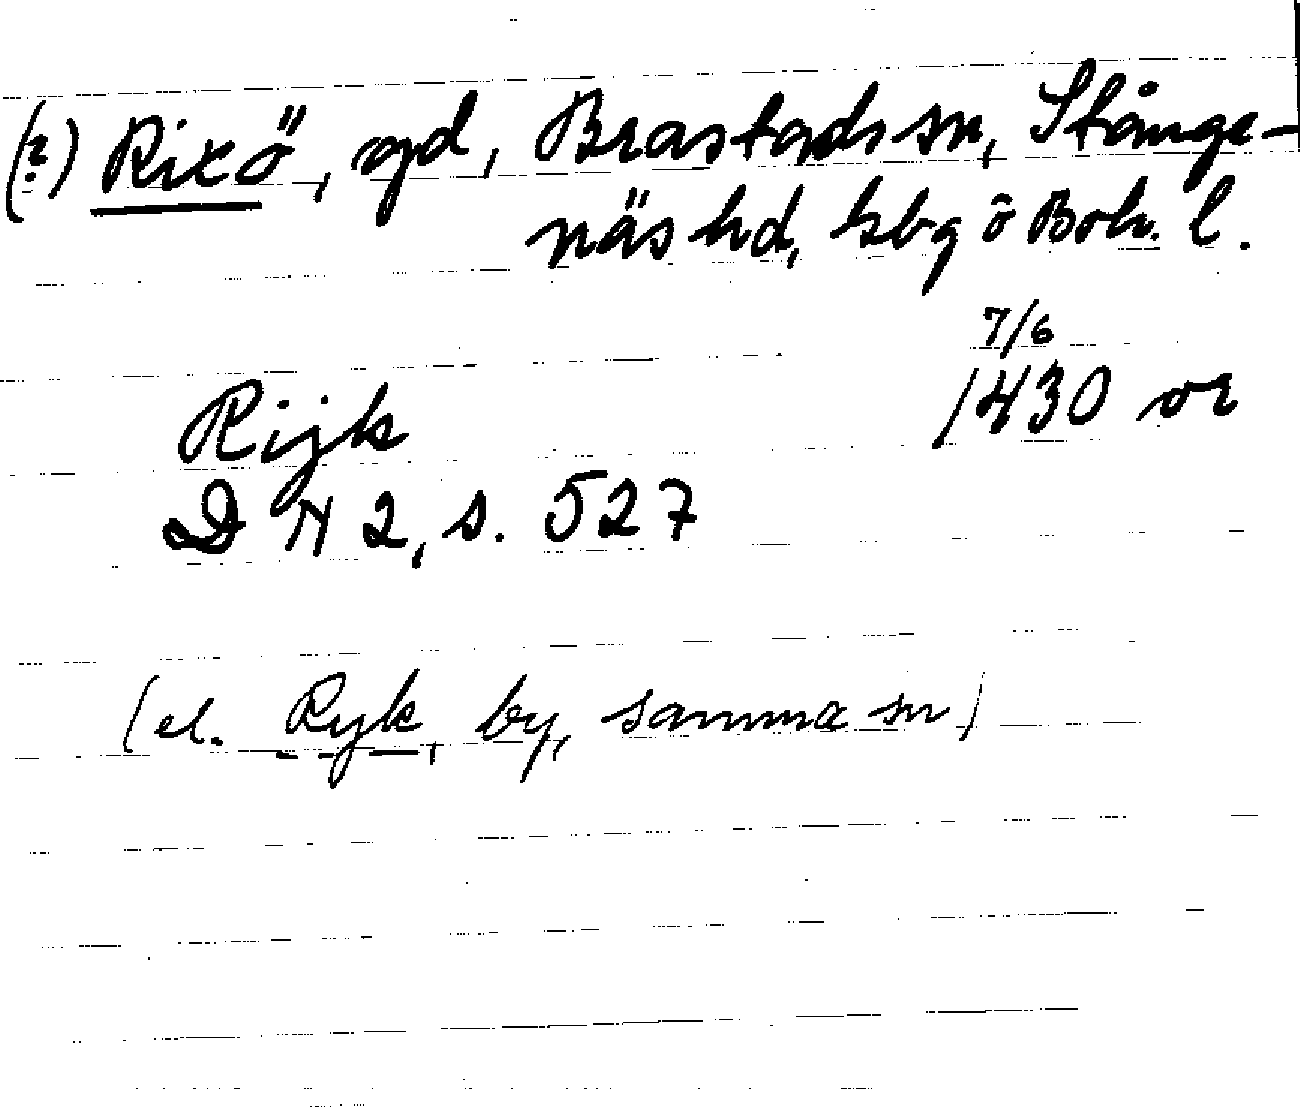 (?) Rixö, gd, Brastads sn, Stånge-
näs hd, Gbg o Boh. l.
7/6
1430 or
Rijk
DN 2, s. 527
(el. Ryk, by, samma sn)